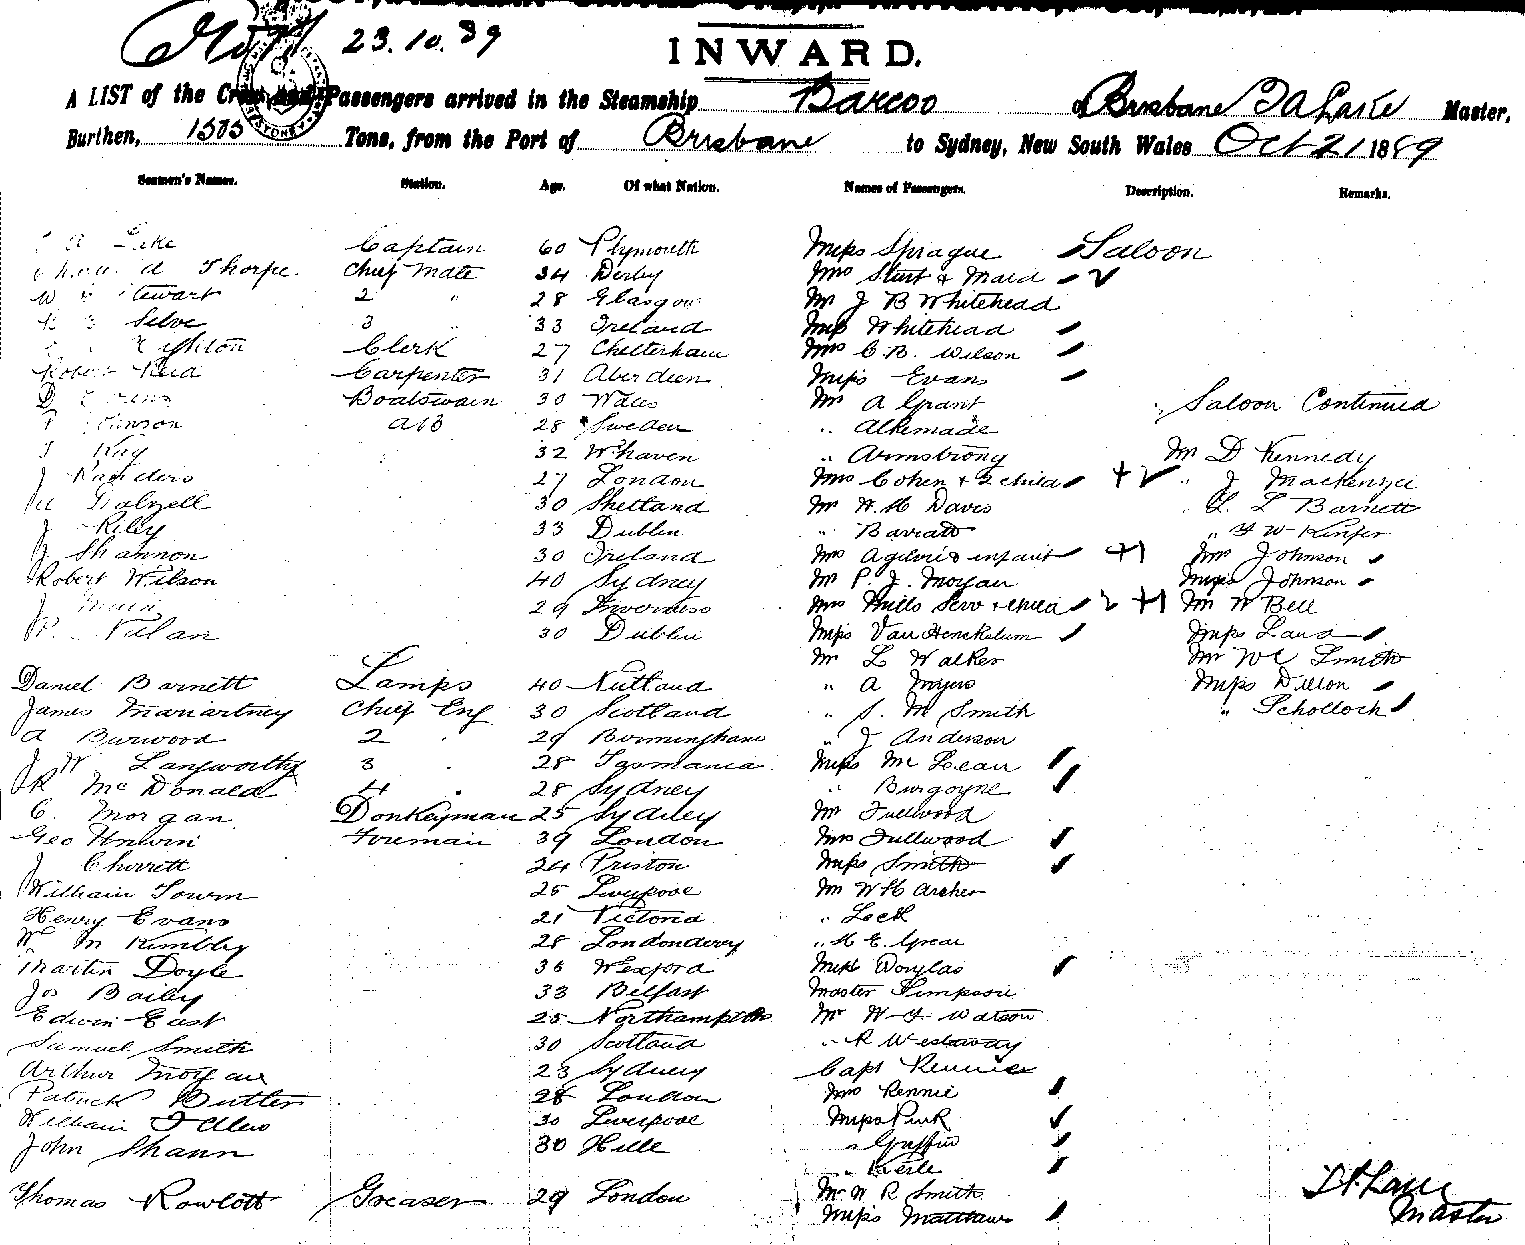 23.10.89
INWARD.
A LIST of the Crew and Passengers arrived in the Steamship Barcoo of Brisbane Lake Master,
Burthen, 1505 Tons, from the Port of Brisbane to Sydney, New South Wales Oct 21 1889
Seamen's Names. Station. Age. Of what Nation. Names of Passengers. Description. Remarks.
A Lake Captain 60 Plymouth Miss Sprague Saloon
Thorpe Chief Mate 34 Derby Mrs Sturt & Maid
Stewart 2 " 28 Glasgow Mr J B Whitehead
Selve 3 " 33 Ireland Miss Whitehead
Clerk 27 Cheltenham Mrs C. B. Wilson
Robert Reid Carpenter 31 Aberdeen Miss Evans
D Boatswain 30 Wales Mr A Grant Saloon Continued
AB 28 Sweden " Alkemade
Kay 32 W'haven " Armstrong Mr D Kennedy
J 27 London Mrs Cohen & 2 child " J Mackenzie
Dalzell 30 Shetland Mr W. H. Davis L. L Barnett
J Riley 33 Dublin " Barratt " F W
J Shannon 30 Ireland Mrs Agilvie & infant Mrs Johnson
Robert Wilson 40 Sydney Mr P. J. Morgan Miss Johnson
J 29 Inverness Mrs Mills Serv & child Mr W Bell
Nolan 30 Dublin Miss Van Henckelum Miss
Mr L Walker Mr Smith
Daniel Barnett Lamps 40 Rutland " A Myers Miss Dillon
James Mariartney Chief Eng 30 Scotland " S. M Smith " Scholloch
A Burwood 2 " 29 Birmingham " J Anderson
J W Langworthy 3 " 28 Tasmania Miss McLean
R McDonald 4 " 28 Sydney " Burgoyne
C. Morgan Donkeyman 25 Sydney Mr Fullwood
Geo Unwin Foreman 39 London Mrs Fullwood
J Cherrett 24 Preston Miss Smith
William 25 Liverpool Mr W H Archer
Henry Evans 21 Victoria " Lock
W M Kimbley 28 Londonderry " H E
Martin Doyle 36 Wexford Miss Douglas
Jos Bailey 33 Belfast Master Simpson
Edwin East 25 Northampton Mr W F Watson
Samuel Smith 30 Scotland " R Westaway
Arthur Morgan 23 Sydney Capt Rennie
Patrick Butler 28 London Mrs Rennie
William 30 Liverpool Miss Park
John Shann 30 Hille " Griffin
" Kerle
Thomas Rowlott Greaser 29 London Mr W R Smith
Miss Matthews
Master